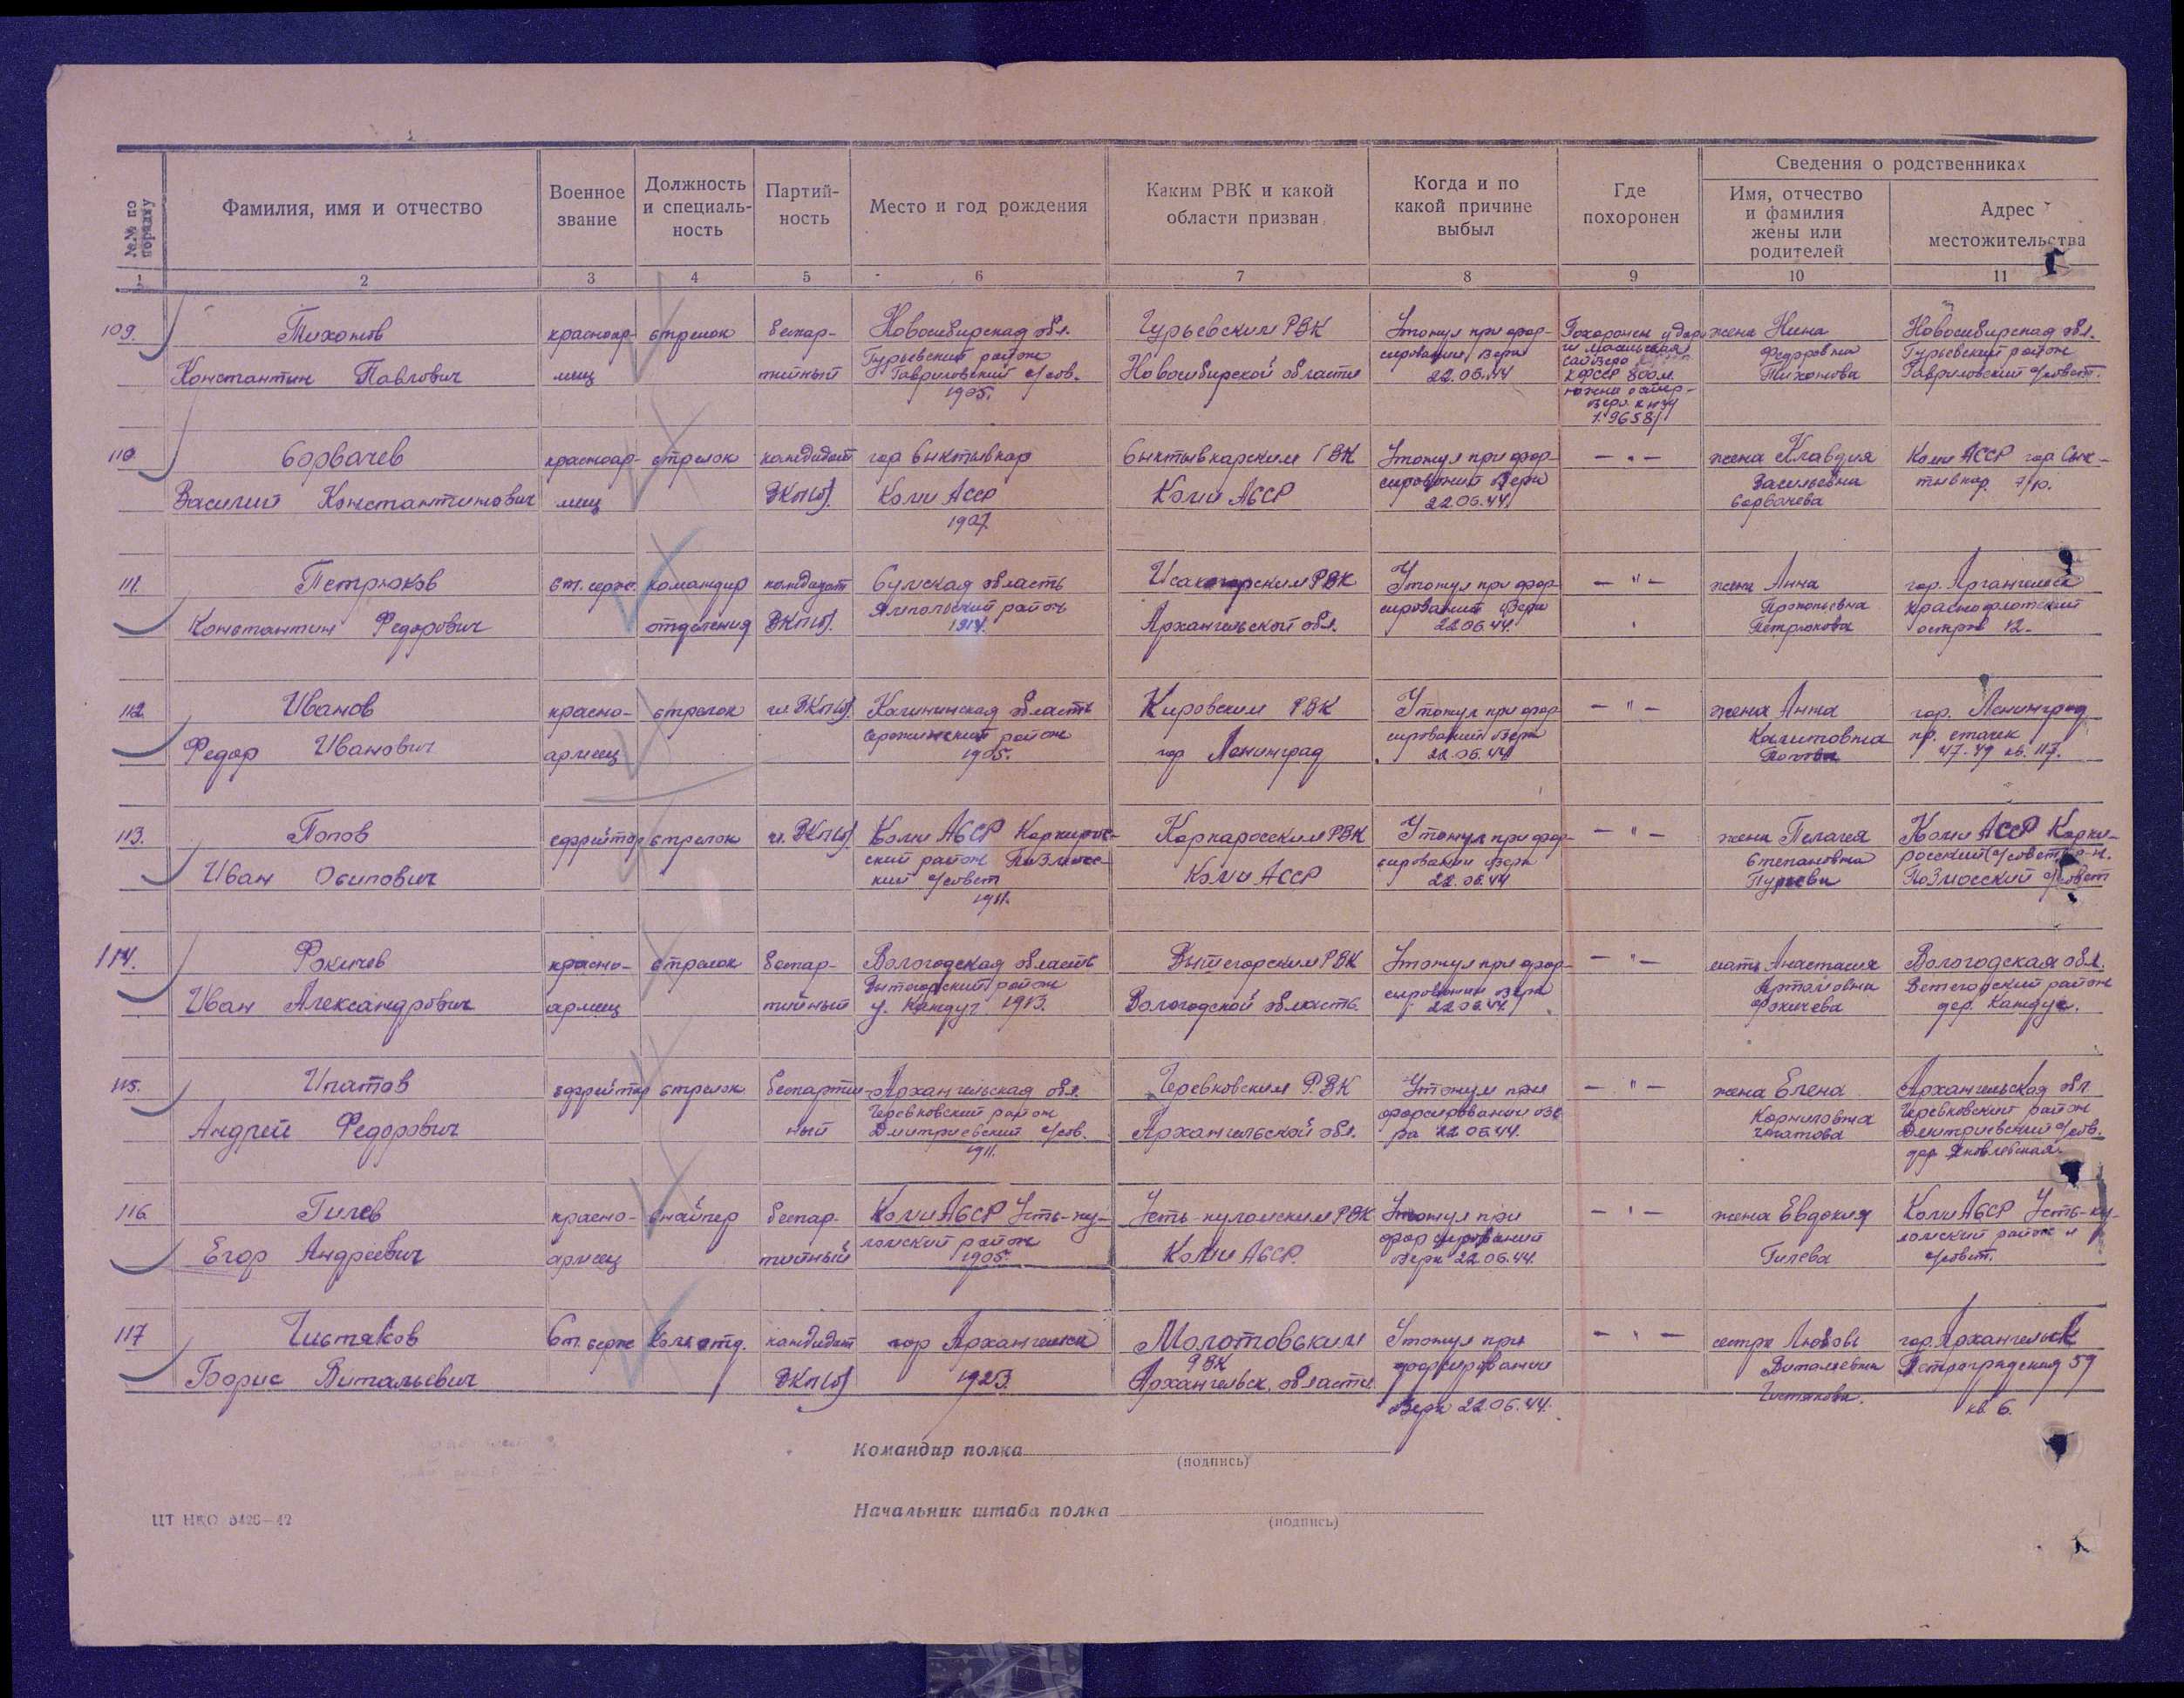 №№ по порядку
Фамилия, имя и отчество
Военное звание
Должность и специаль-ность
Партий-ность
Место и год рождения
Каким РВК и какой области призван
Когда и по какой причине выбыл
Где похоронен
Сведения о родственниках
Имя, отчество и фамилия жены или родителей
Адрес местожительства
1 2 3 4 5 6 7 8 9 10 11
109. Тихонов красноар- стрелок беспар- Новосибирская обл. Гурьевским РВК Утонул при фор- Похоронен жена Нина Новосибирская обл.
Константин Павлович меец тийный Гурьевский район Новосибирской области сировании озера Федоровна Гурьевский район
Гавриловский с/сов. 22.06.44 КФССР 800 м. Тихонова Гавриловский с/совет.
1905.
110. Сорвачев красноар- стрелок кандидат гор Сыктывкар Сыктывкарским ГВК Утонул при фор- — " — жена Клавдия Коми АССР гор Сык-
Василий Константинович меец ВКП(б). Коми АССР Коми АССР сировании озера Васильевна тывкар.
1907 22.06.44 Сорвачева
111. Петрюков ст. серж. командир кандидат Сумская область Исакогорским РВК Утонул при фор- — " — жена Анна гор. Архангельск
Константин Федорович отделения ВКП(б). Ямпольский район Архангельской обл. сировании озера Прокопьевна Краснофлотский
1914. 22.06.44. Петрюкова остров 12.
112. Иванов красно- стрелок чл ВКП(б). Калининская область Кировским РВК Утонул при фор- — " — жена Анна гор. Ленинград
Федор Иванович армеец район гор Ленинград сировании озера пр. стачек
1905. 22.06.44 47.49 кв. 117.
113. Попов ефрейтор стрелок чл. ВКП(б). Коми АССР Коркаросским РВК Утонул при фор- — " — жена Пелагея Коми АССР Корке-
Иван Осипович ский район Коми АССР сировании озера Степановна росский
кий с/совет 22.06.44 с/совет
1911.
114. Фокичев красно- стрелок беспар- Вологодская область Вытегорским РВК Утонул при фор- — " — мать Анастасия Вологодская обл.
Иван Александрович армеец тийный Вытегорский район Вологодской область. сировании озера Вытегорский район
1913. 22.06.44. Фокичева дер.
115. Ипатов ефрейтор стрелок беспартий- Архангельская обл. Черевковским РВК Утонул при — " — жена Елена Архангельская обл
Андрей Федорович ный Черевковский район Архангельской обл. форсировании озе Корниловна Черевковский район
Дмитриевский с/сов. ра 22.06.44. Ипатова Дмитриевский с/сов.
1911. дер Яковлевская.
116 Гилев красно- снайпер беспар- Коми АССР Усть-ку- Усть-куломским РВК Утонул при — " — жена Евдокия Коми АССР Усть-ку-
Егор Андреевич армеец тийный ломский район Коми АССР. форсировании Гилева ломский район
1905. озера 22.06.44. с/совет.
117 Чистяков Ст. серж Ком. отд. кандидат гор Архангельск Молотовским Утонул при — " — сестра Любовь гор. Архангельск
Борис Витальевич ВКП(б) 1923. РВК форсировании Витальевна Петроградская 59
Архангельск. области озера 22.06.44. Чистякова. кв 6.
Командир полка
(подпись)
Начальник штаба полка
(подпись)
ЦТ НКО 0426—42